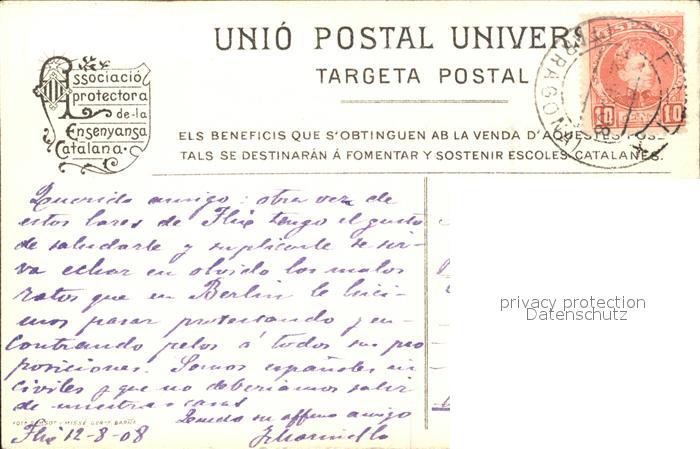 UNIÓ POSTAL UNIVERS
TARGETA POSTAL
Associació
protectora
de-la
Ensenyansa
Catalana
ESPAÑA
10 10
TARRAGONA
ELS BENEFICIS QUE S'OBTINGUEN AB LA VENDA D'AQUESTES POS
TALS SE DESTINARÁN Á FOMENTAR Y SOSTENIR ESCOLES CATALANES.
Querido amigo: otra vez de
estos lares de Flix tengo el gusto
de saludarle y suplicarle se sir-
va echar en olvido los malos
ratos que en Berlin le hici-
mos pasar protestando y en-
contrando pelos á todas sus pro
posiciones. Somos españoles in-
civiles y que no deberiamos salir
de nuestras casas
Queda su affmo amigo
Flix 12-8-08
privacy protection
Datenschutz